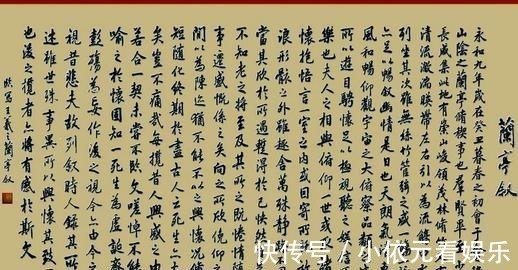 蘭亭敘
永和九年歲在癸丑暮春之初會于
山陰之蘭亭脩禊事也羣賢畢
長咸集此地有崇山峻領茂林脩
清流激湍映帶左右引以為流觴
列坐其次雖無絲竹管絃之盛
亦足以暢敘幽情是日也天朗氣
風和暢仰觀宇宙之大俯察品類
所以遊目騁懷足以極視聽之娛
樂也夫人之相與俯仰一世或
懷抱悟言一室之內或因寄所
浪形骸之外雖趣舍萬殊靜
當其欣於所遇暫得於己怏然
不知老之將至及其所之既惓情
事遷感慨係之矣向之所欣俛仰之
間以為陳迹猶不能不以之興懷況脩
短隨化終期於盡古人云死生
矣豈不痛哉每攬昔人興感之由
若合一契未嘗不臨文嗟悼不能
喻之於懷固知一死生為虛誕齊
彭殤為妄作後之視今亦由今之
視昔悲夫故列敘時人錄其所
述雖世殊事異所以興懷其致
也後之攬者亦將有感於斯文
臨寫王羲之蘭亭敘
快传号/小依元看娱乐